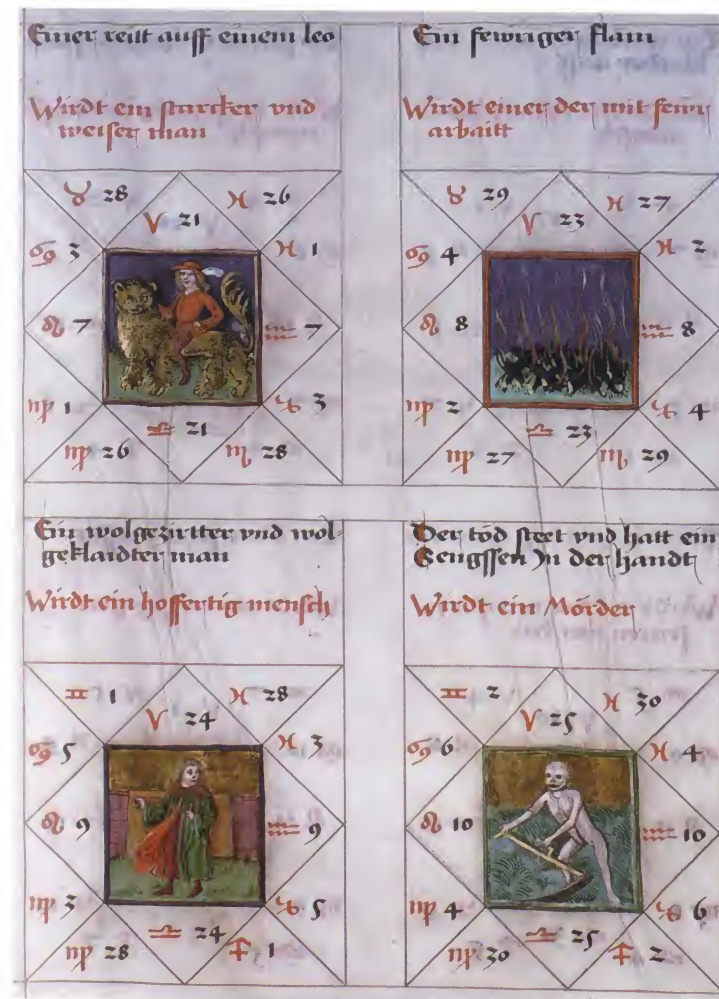 Einer reitt auff einem leo
Wirdt ein starcker vnd
weiser man
♉ 28
♈ 21
♓ 26
♋ 3
♓ 1
♌ 7
♒ 7
♍ 1
♑ 3
♍ 26
♎ 21
♏ 28
Ein fewriger flam
Wirdt einer der mit fewr
arbaitt
♉ 29
♈ 23
♓ 27
♋ 4
♓ 2
♌ 8
♒ 8
♍ 2
♑ 4
♍ 27
♎ 23
♏ 29
Ein wolgezirtter vnd wol-
geklaidter man
Wirdt ein hoffertig mensch
♊ 1
♈ 24
♓ 28
♋ 5
♓ 3
♌ 9
♒ 9
♍ 3
♑ 5
♍ 28
♎ 24
♐ 1
Der tod steet vnd hatt ein
Sengssen In der handt
Wirdt ein Mörder
♊ 2
♈ 25
♓ 30
♋ 6
♓ 4
♌ 10
♒ 10
♍ 4
♑ 6
♍ 30
♎ 25
♐ 2